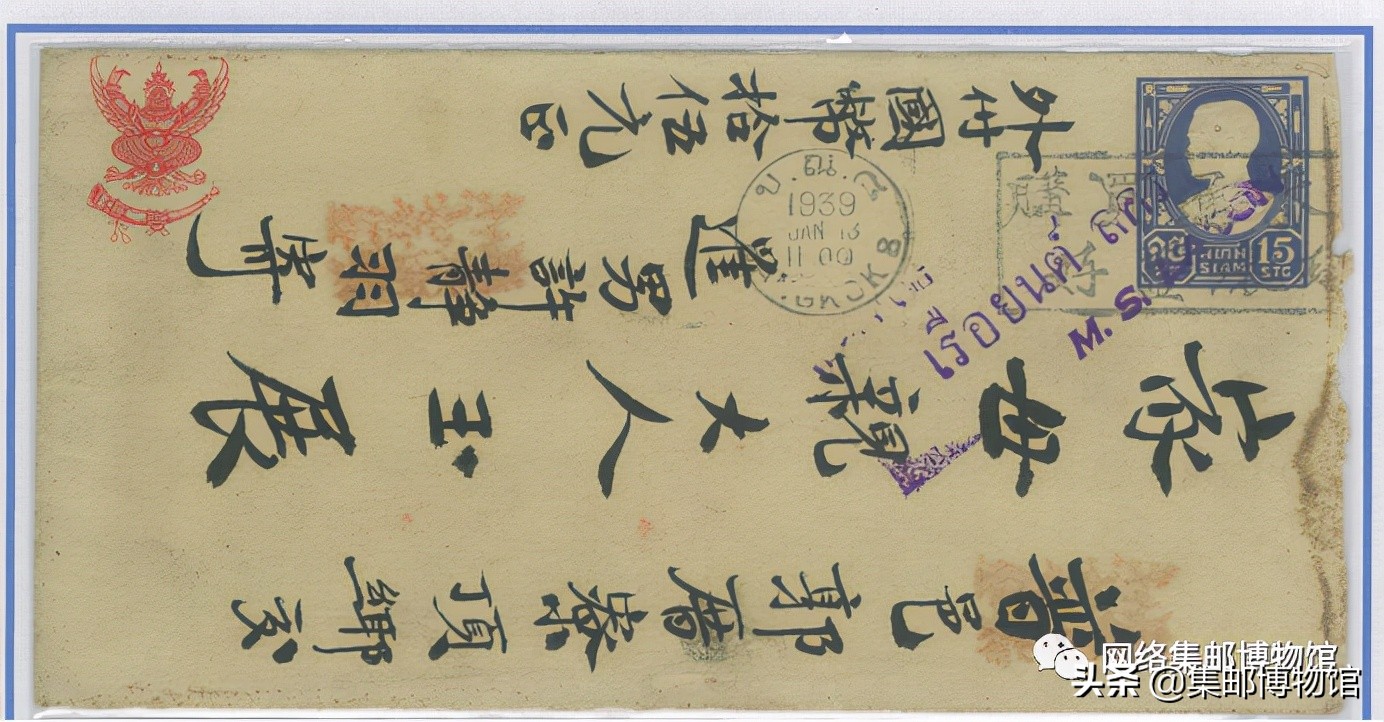 普邑郭厝寮頂鄉交
家母親大人 玉展
暹男許靜羽寄
外付國幣拾伍元正
1939
JAN 13
11 00
GKOK 8
๑๕ SIAM 15
STG
เรือยนต์
M.S.
网络集邮博物馆
头条 @集邮博物馆